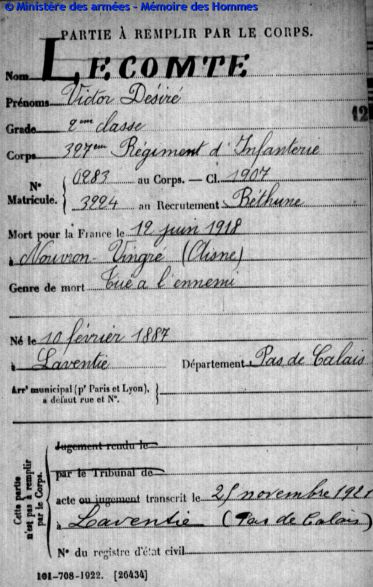 © Ministère des armées - Mémoire des Hommes
PARTIE À REMPLIR PAR LE CORPS.
Nom LECOMTE
Prénoms Victor Désiré
12
Grade 2eme classe
Corps 327eme Régiment d'Infanterie
N° Matricule. { 0283 au Corps. — Cl. 1907
3224 au Recrutement Béthune
Mort pour la France le 12 juin 1918
à Nouvron-Vingré (Aisne)
Genre de mort Tué a l'ennemi
Né le 10 février 1887
à Laventie Département Pas de Calais
Arrt municipal (pr Paris et Lyon), à défaut rue et N°. }
Cette partie n'est pas à remplir par le Corps.
Jugement rendu le
par le Tribunal de
acte ou jugement transcrit le 25 novembre 1921
à Laventie (Pas de Calais)
N° du registre d'état civil
101-708-1922. [26434]